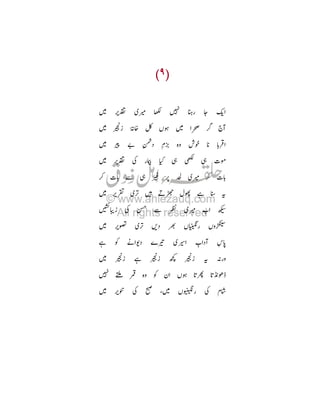 (۹)
ایک جا رہنا نہیں لکھا میری تقدیر میں
آج گر صحرا میں ہوں کل خانۂ زنجیر میں
اقربا نا خوش وہ بزم دشمن بے پیر میں
موت ہی لکھی ہی کیا بیمار کی تقدیر میں
بات میری ہی بات کر
یہ سنا ہے پھول جھڑتے ہیں تری تقریر میں
میری سے کی
سیکڑوں رنگینیاں بھر دیں تری تصویر میں
پاسِ آدابِ اسیری تیرے دیوانے کو ہے
ورنہ یہ زنجیر کچھ زنجیر ہے زنجیر میں
ڈھونڈتا پھرتا ہوں ان کو وہ قمر ملتے نہیں
شام کی رنگینیوں میں، صبح کی تنویر میں
© www.aniezauq.com
All rights reserved